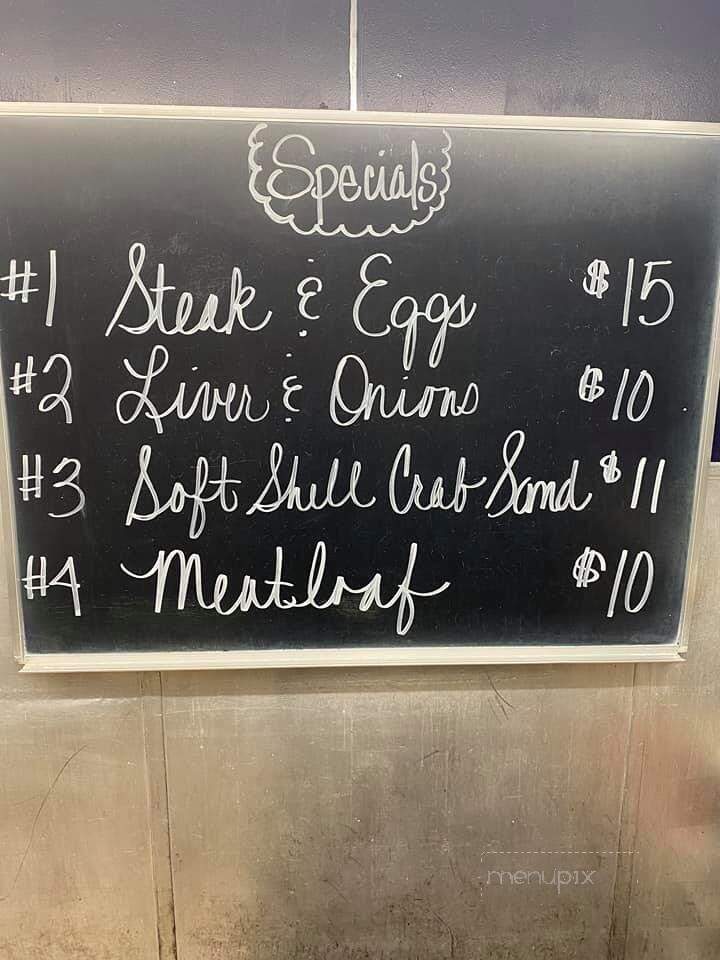 Specials
#1 Steak & Eggs $15
#2 Liver & Onions $10
#3 Soft Shell Crab Sand $11
#4 Meatloaf $10
menupix